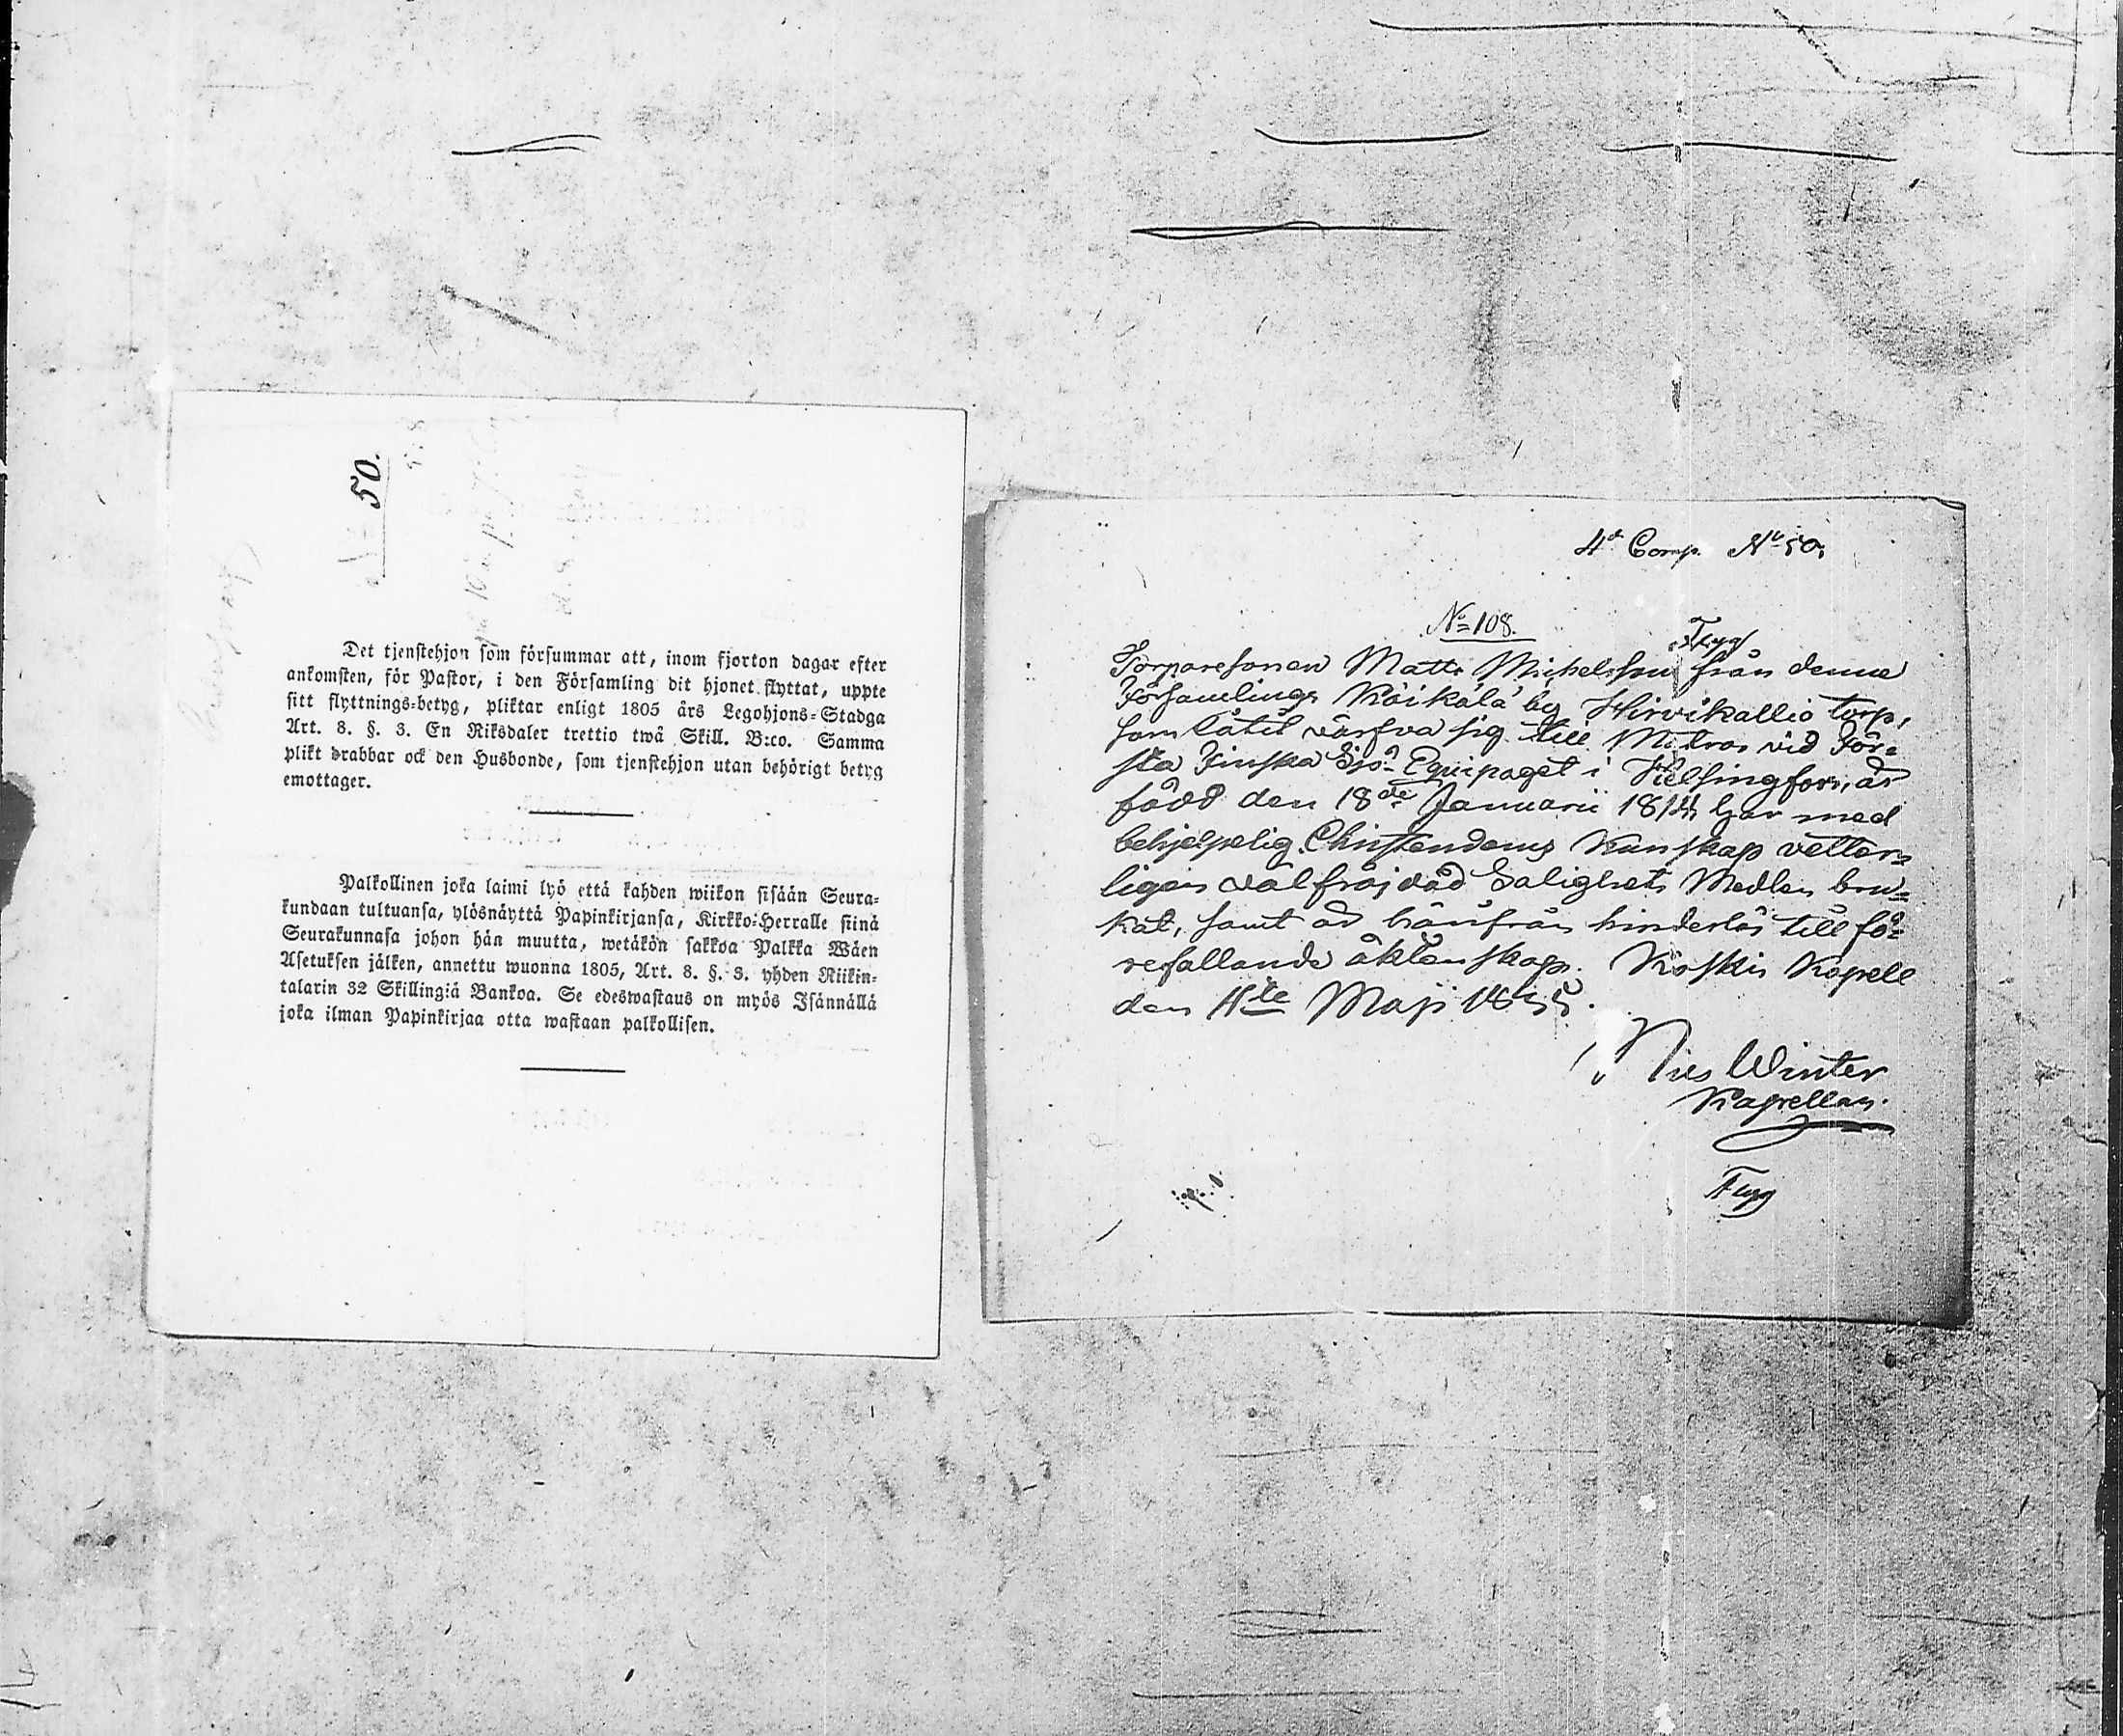 50.
Det tjenstehjon som försummar att, inom fjorton dagar efter
ankomsten, för Pastor, i den Församling dit hjonet flyttat, uppte
sitt flyttnings-betyg, pliktar enligt 1805 års Legohjons-Stadga
Art. 8. §. 3. En Riksdaler trettio twå Skill. B:co. Samma
plikt drabbar ock den Husbonde, som tjenstehjon utan behörigt betyg
emottager.
Palkollinen joka laimi lyö että kahden wiikon sisään Seura-
kundaan tultuansa, ylösnäyttä Papinkirjansa, Kirkko-Herralle siinä
Seurakunnasa johon hän muutta, wetäkön sakkoa Palkka Wäen
Asetuksen jälken, annettu wuonna 1805, Art. 8. §. 3. yhden Riikin-
talarin 32 Skillingiä Bankoa. Se edeswastaus on myös Isännällä
joka ilman Papinkirjaa otta wastaan palkollisen.
4de Comp. No 50.
No 108.
Torparesonen Matts Michelsson från denne
Församlings Käikälä by Hirvikallio torp,
som låtit värfva sig till Matros vid För-
sta Finska Sjö-Equipaget i Helsingfors, är
född den 18de Januarii 1814, har med
behjelpelig Christendoms Kunskap vetter-
ligen välfräjdad Salighets Medlen bru-
kat, samt är härifrån hinderlös till fö-
refallande äktenskap. Koskis Kapell
den 11te Maji 1835.
Nils Winter
Kapellan.